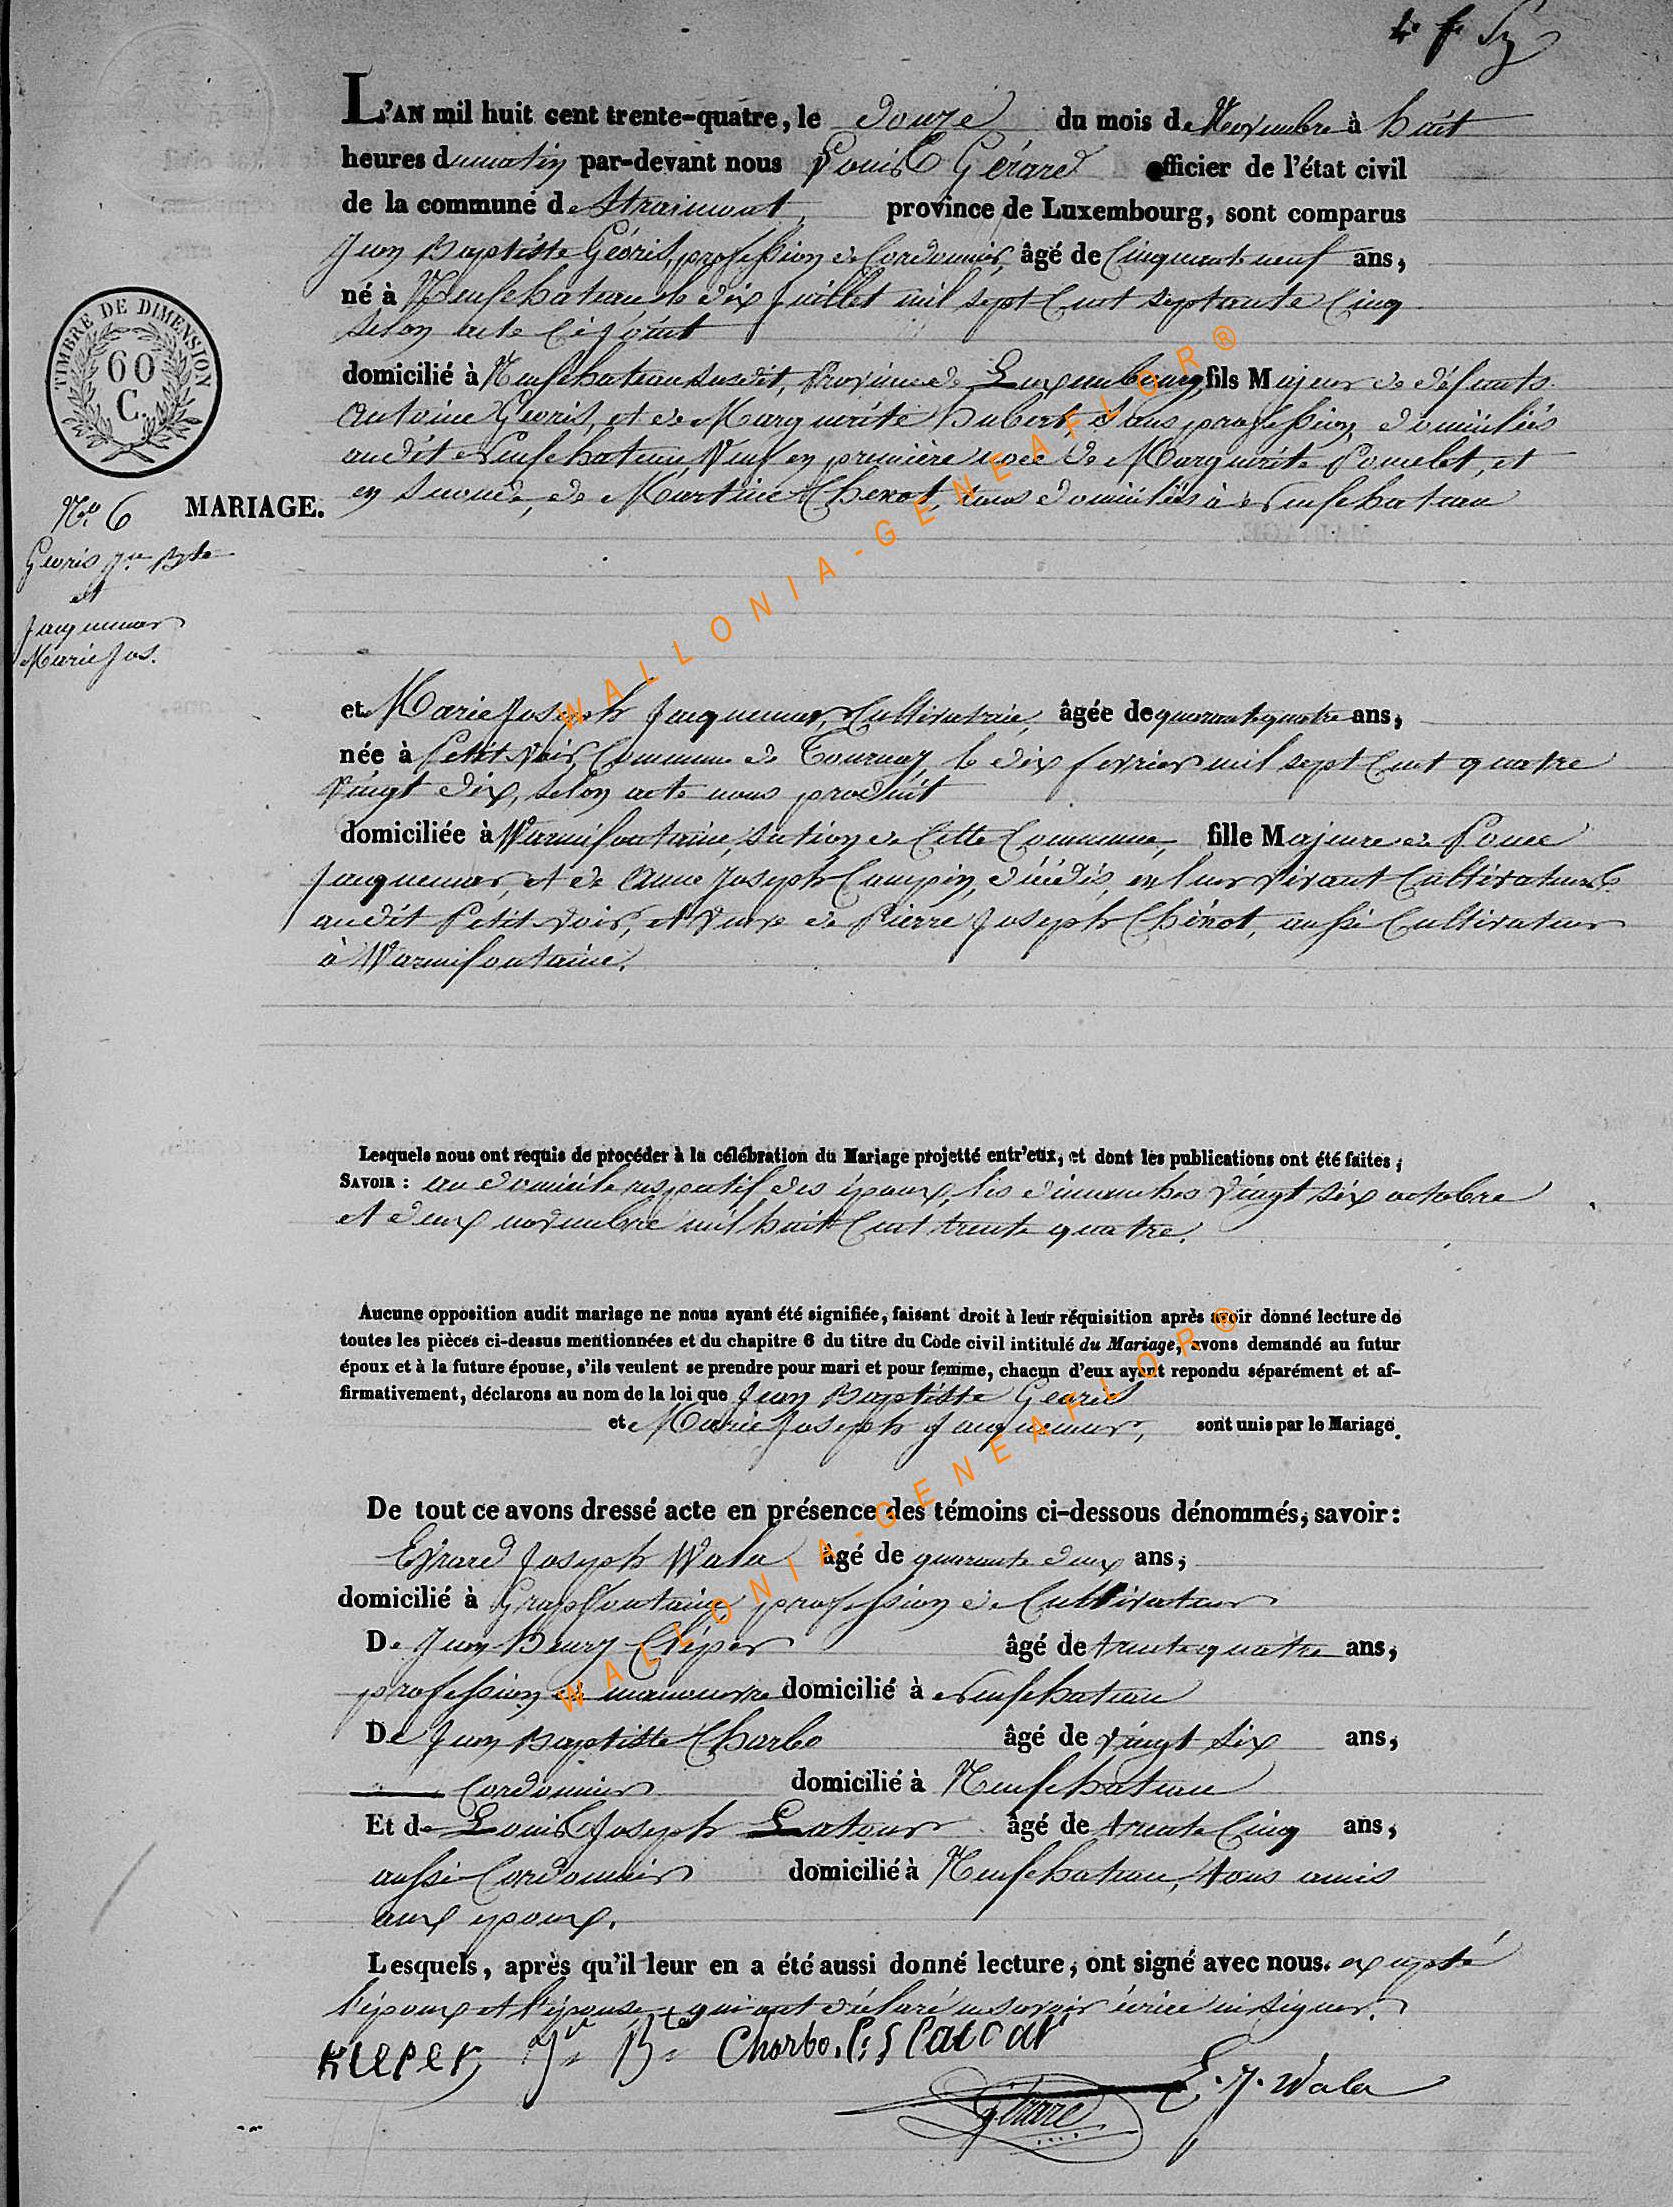 L'AN mil huit cent trente-quatre, le douze du mois de Novembre à huit
heures du matin par-devant nous Louis Gérard officier de l'état civil
de la commune de Straimont, province de Luxembourg, sont comparus
Jean Baptiste Géoris, profession de Cordonnier, âgé de Cinquante neuf ans,
né à Neufchateau le dix Juillet mil sept Cent septante Cinq
selon acte Ci joint
domicilié à Neufchateau susdit, Province de Luxembourg, fils Majeur de défunts
Antoine Géoris, et de Marguerite Hubert, sans profession, domiciliés
audit Neufchateau, Veuf en première noce de Marguerite Poncelet, et
en seconde, de Martine Chenot, tous domiciliés à Neufchateau
TIMBRE DE DIMENSION
60
C.
MARIAGE.
N.º 6
Géoris Jn Bte
et
Jacquemar
Marie Jos.
et Marie Joseph Jacquemar, Cultivatrice, âgée de quarante quatre ans,
née à Petit Voir, Commune de Tournay, le dix fevrier mil sept Cent quatre
Vingt dix, selon acte nous produit
domiciliée à Warmifontaine, section de Cette Commune, fille Majeure de Ponce
Jacquemar, et de Anne Joseph Campin, décédés, en leur vivant Cultivateurs
audit Petit Voir, et Veuve de Pierre Joseph Chénot, aussi Cultivateur
à Warmifontaine.
Lesquels nous ont requis de procéder à la célébration du Mariage projetté entr'eux, et dont les publications ont été faites ;
SAVOIR : au domicile respectif des époux, les dimanches Vingt six octobre
et deux novembre mil huit Cent trente quatre.
Aucune opposition audit mariage ne nous ayant été signifiée, faisant droit à leur réquisition après avoir donné lecture de
toutes les pièces ci-dessus mentionnées et du chapitre 6 du titre du Code civil intitulé du Mariage, avons demandé au futur
époux et à la future épouse, s'ils veulent se prendre pour mari et pour femme, chacun d'eux ayant repondu séparément et af-
firmativement, déclarons au nom de la loi que Jean Baptiste Géoris
et Marie Joseph Jacquemar, sont unis par le Mariage.
De tout ce avons dressé acte en présence des témoins ci-dessous dénommés, savoir :
Evrard Joseph Wala âgé de quarante deux ans,
domicilié à Grapfontaine profession de Cultivateur
De Jean Henry Cléper âgé de trente quatre ans,
profession de manoeuvre domicilié à Neufchateau
De Jean Baptiste Charbo âgé de vingt six ans,
Cordonnier domicilié à Neufchateau
Et de Louis Joseph Latour âgé de trente Cinq ans,
aussi Cordonnier domicilié à Neufchateau, tous amis
aux époux.
Lesquels, après qu'il leur en a été aussi donné lecture, ont signé avec nous. excepté
l'époux et l'épouse, qui ont déclaré ne savoir écrire ni signer.
Kleper Jn Bte Charbo. L: J Latour
E. J. Wala
Gérard
WALLONIA-GENEAFLOR®
WALLONIA-GENEAFLOR®